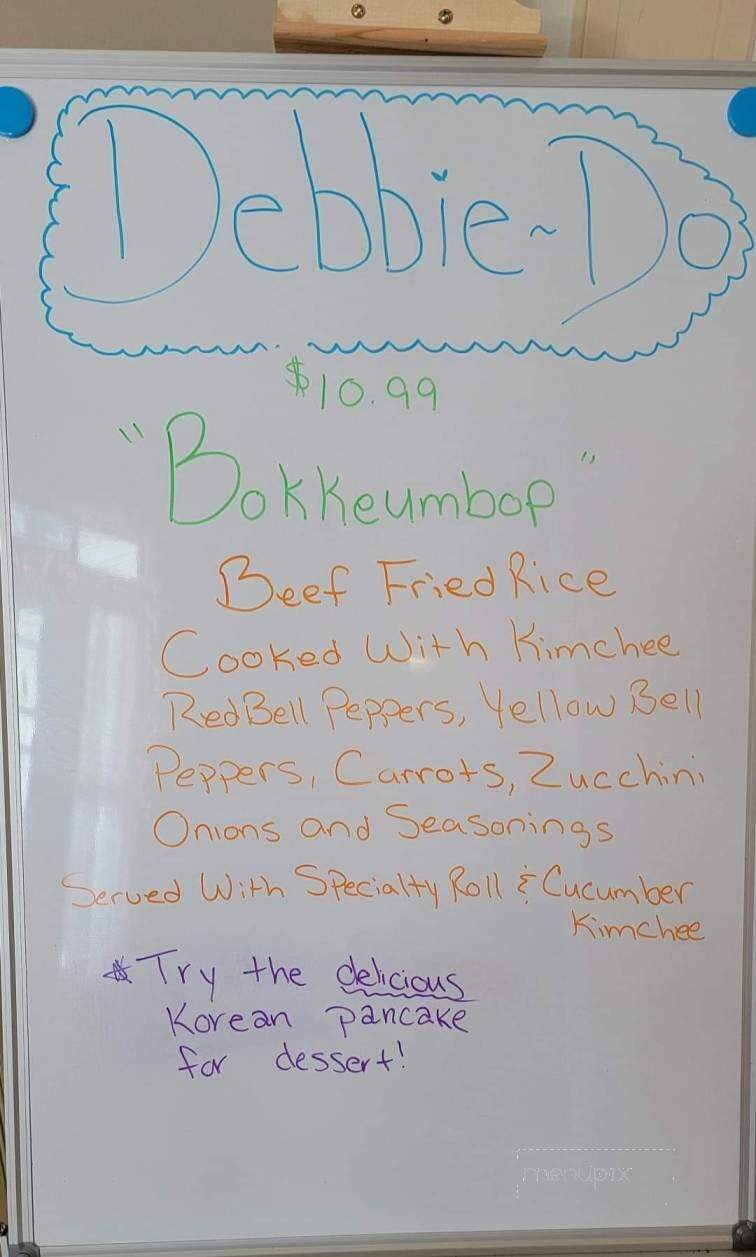 Debbie~Do
$10.99
"Bokkeumbop"
Beef Fried Rice
Cooked With Kimchee
Red Bell Peppers, Yellow Bell
Peppers, Carrots, Zucchini
Onions and Seasonings
Served With Specialty Roll & Cucumber
Kimchee
* Try the delicious
Korean pancake
for dessert!
menupix